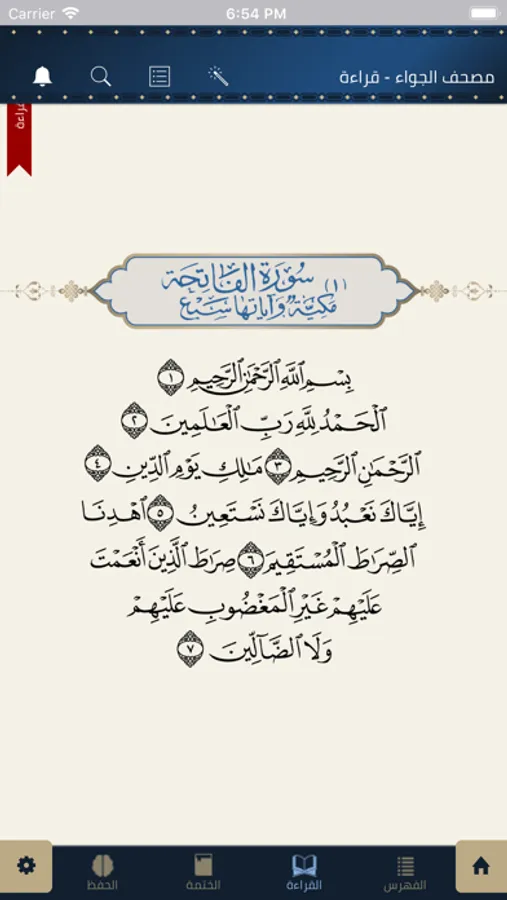 Carrier 6:54 PM
مصحف الجواء - قراءة
قراءة
سُورَةُ الفَاتِحَة
(١) مَكِّيَّة وَآيَاتهَا سَبْع
بِسْمِ ٱللَّهِ ٱلرَّحْمَٰنِ ٱلرَّحِيمِ ١
ٱلْحَمْدُ لِلَّهِ رَبِّ ٱلْعَٰلَمِينَ ٢
ٱلرَّحْمَٰنِ ٱلرَّحِيمِ ٣ مَٰلِكِ يَوْمِ ٱلدِّينِ ٤
إِيَّاكَ نَعْبُدُ وَإِيَّاكَ نَسْتَعِينُ ٥ ٱهْدِنَا
ٱلصِّرَٰطَ ٱلْمُسْتَقِيمَ ٦ صِرَٰطَ ٱلَّذِينَ أَنْعَمْتَ
عَلَيْهِمْ غَيْرِ ٱلْمَغْضُوبِ عَلَيْهِمْ
وَلَا ٱلضَّآلِّينَ ٧
الفهرس القراءة الختمة الحفظ